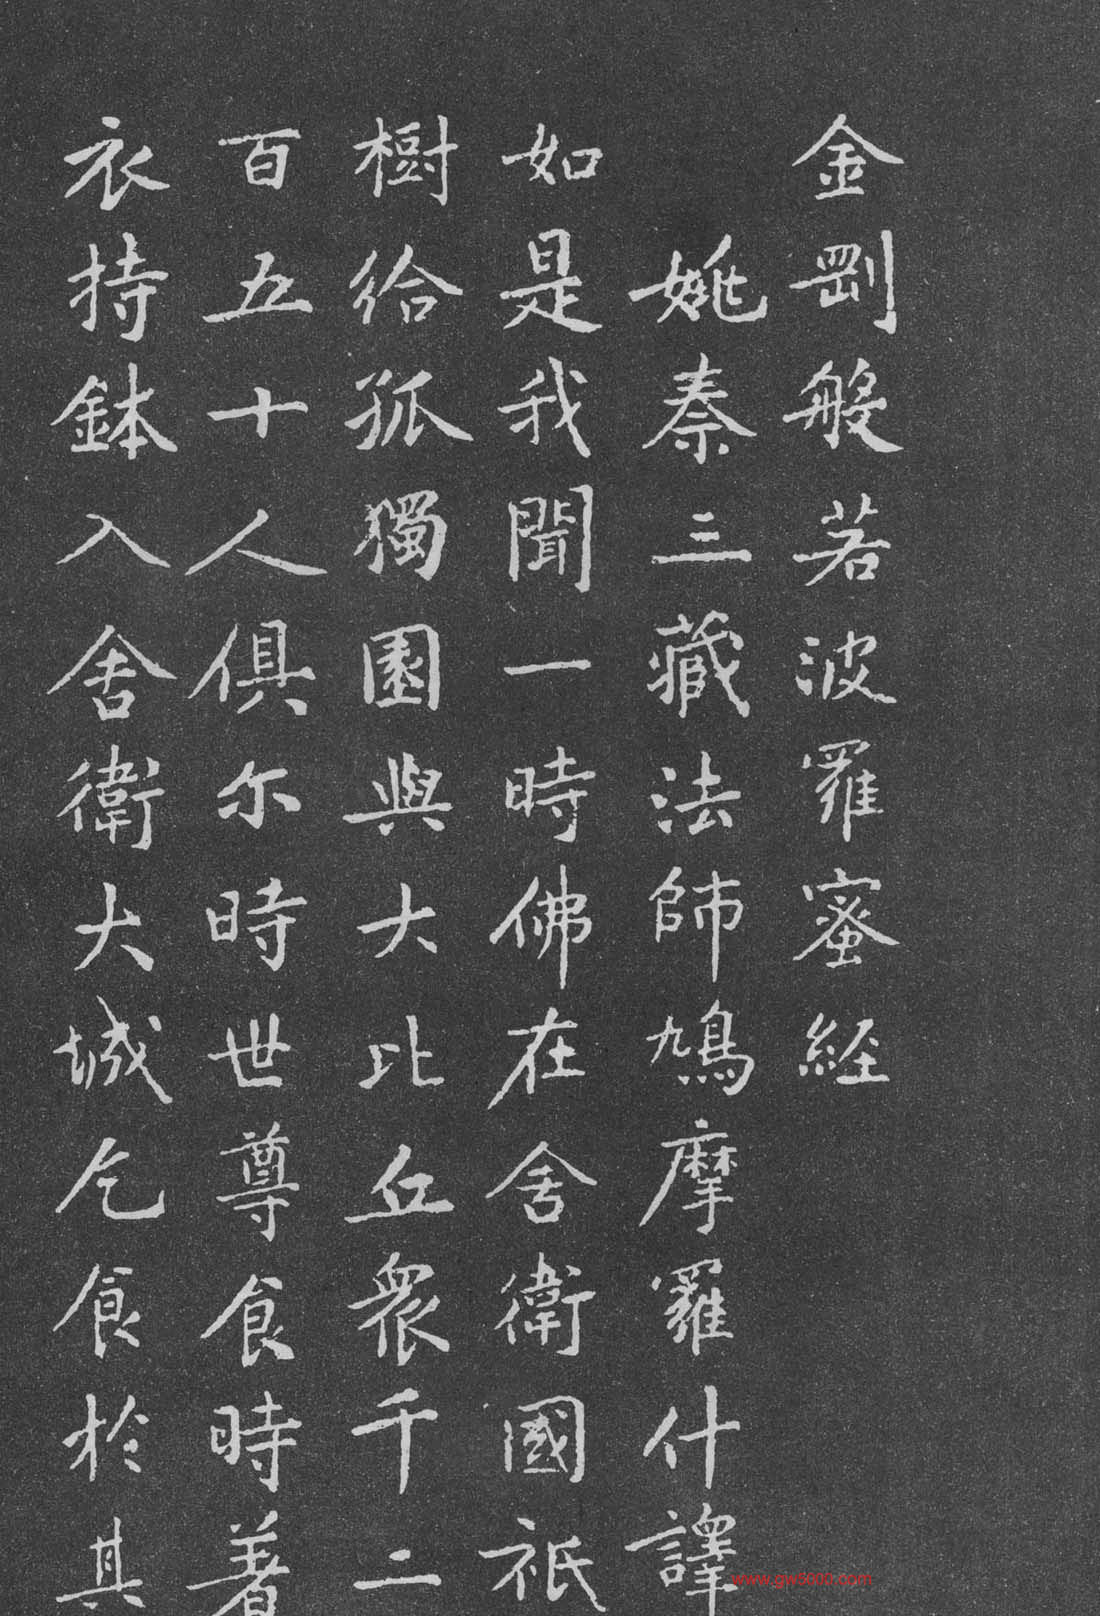 金剛般若波羅蜜經
姚秦三藏法師鳩摩羅什譯
如是我聞一時佛在舍衛國祇
樹給孤獨園與大比丘衆千二
百五十人俱尒時世尊食時著
衣持鉢入舍衛大城乞食於其
www.gw5800.com